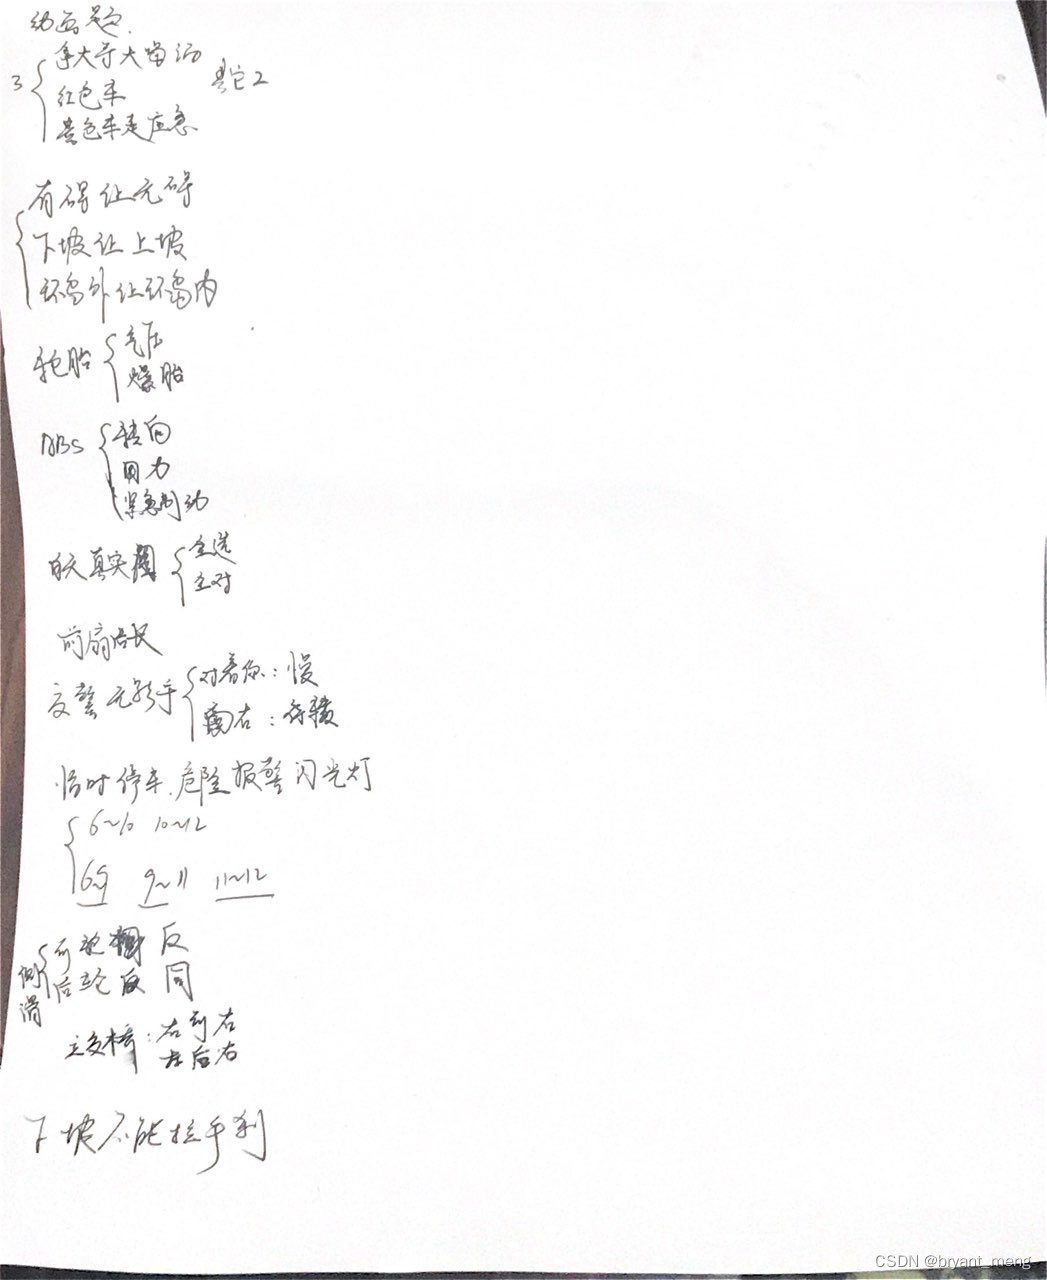 动画题.
3 { 拿大哥大当沥 其它2
红色车
黄色车是应急
有碍让无碍
下坡让上坡
环岛外让环岛内
轮胎 { 气压
爆胎
ABS { 转向
回力
紧急制动
白天真实图 { 全选
全对
前扇后长
交警无影手 { 对着你：慢
面右：待转
临时停车.危险报警闪光灯
6~10 10~12
6~9 9~11 11~12
侧滑 { 前轮 反
后轮 反 同
立交桥：右前右
左后右
下坡不能拉手刹
CSDN @bryant_meng